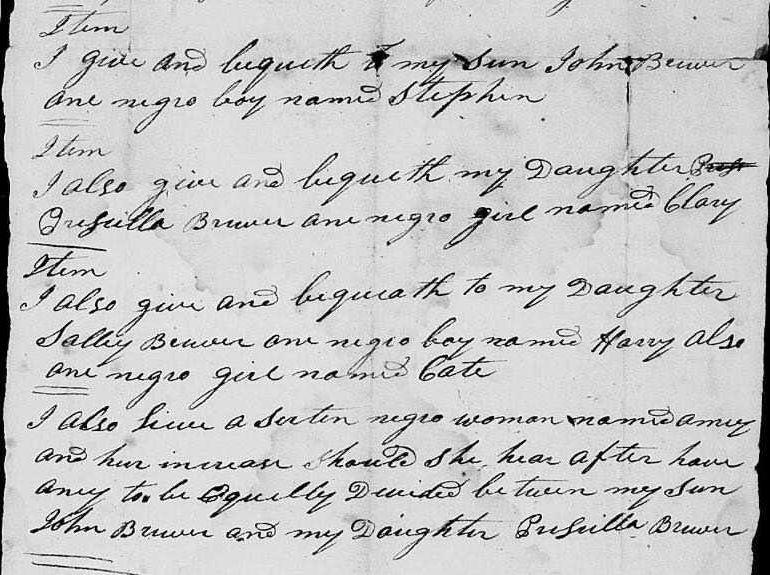 Item
I give and bequeth to my Sun John Bruver
one negro boy named Stephen
Item
I also give and bequeth my Daughter
Prescilla Bruver one negro girl named Clary
Item
I also give and bequeath to my Daughter
Salley Bruver one negro boy named Harry also
one negro girl named Cate
I also lieve a serten negro woman named amey
and hur increase should she hear after have
aney to be Equelly Devided between my Sun
John Bruver and my Daughter Prescilla Bruver